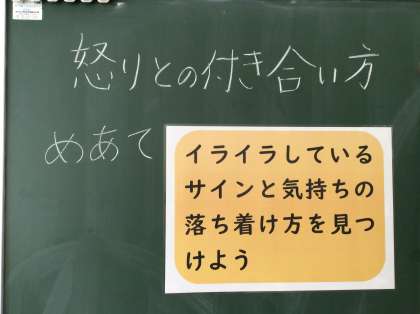 怒りとの付き合い方
めあて
イライラしている
サインと気持ちの
落ち着け方を見つ
けよう